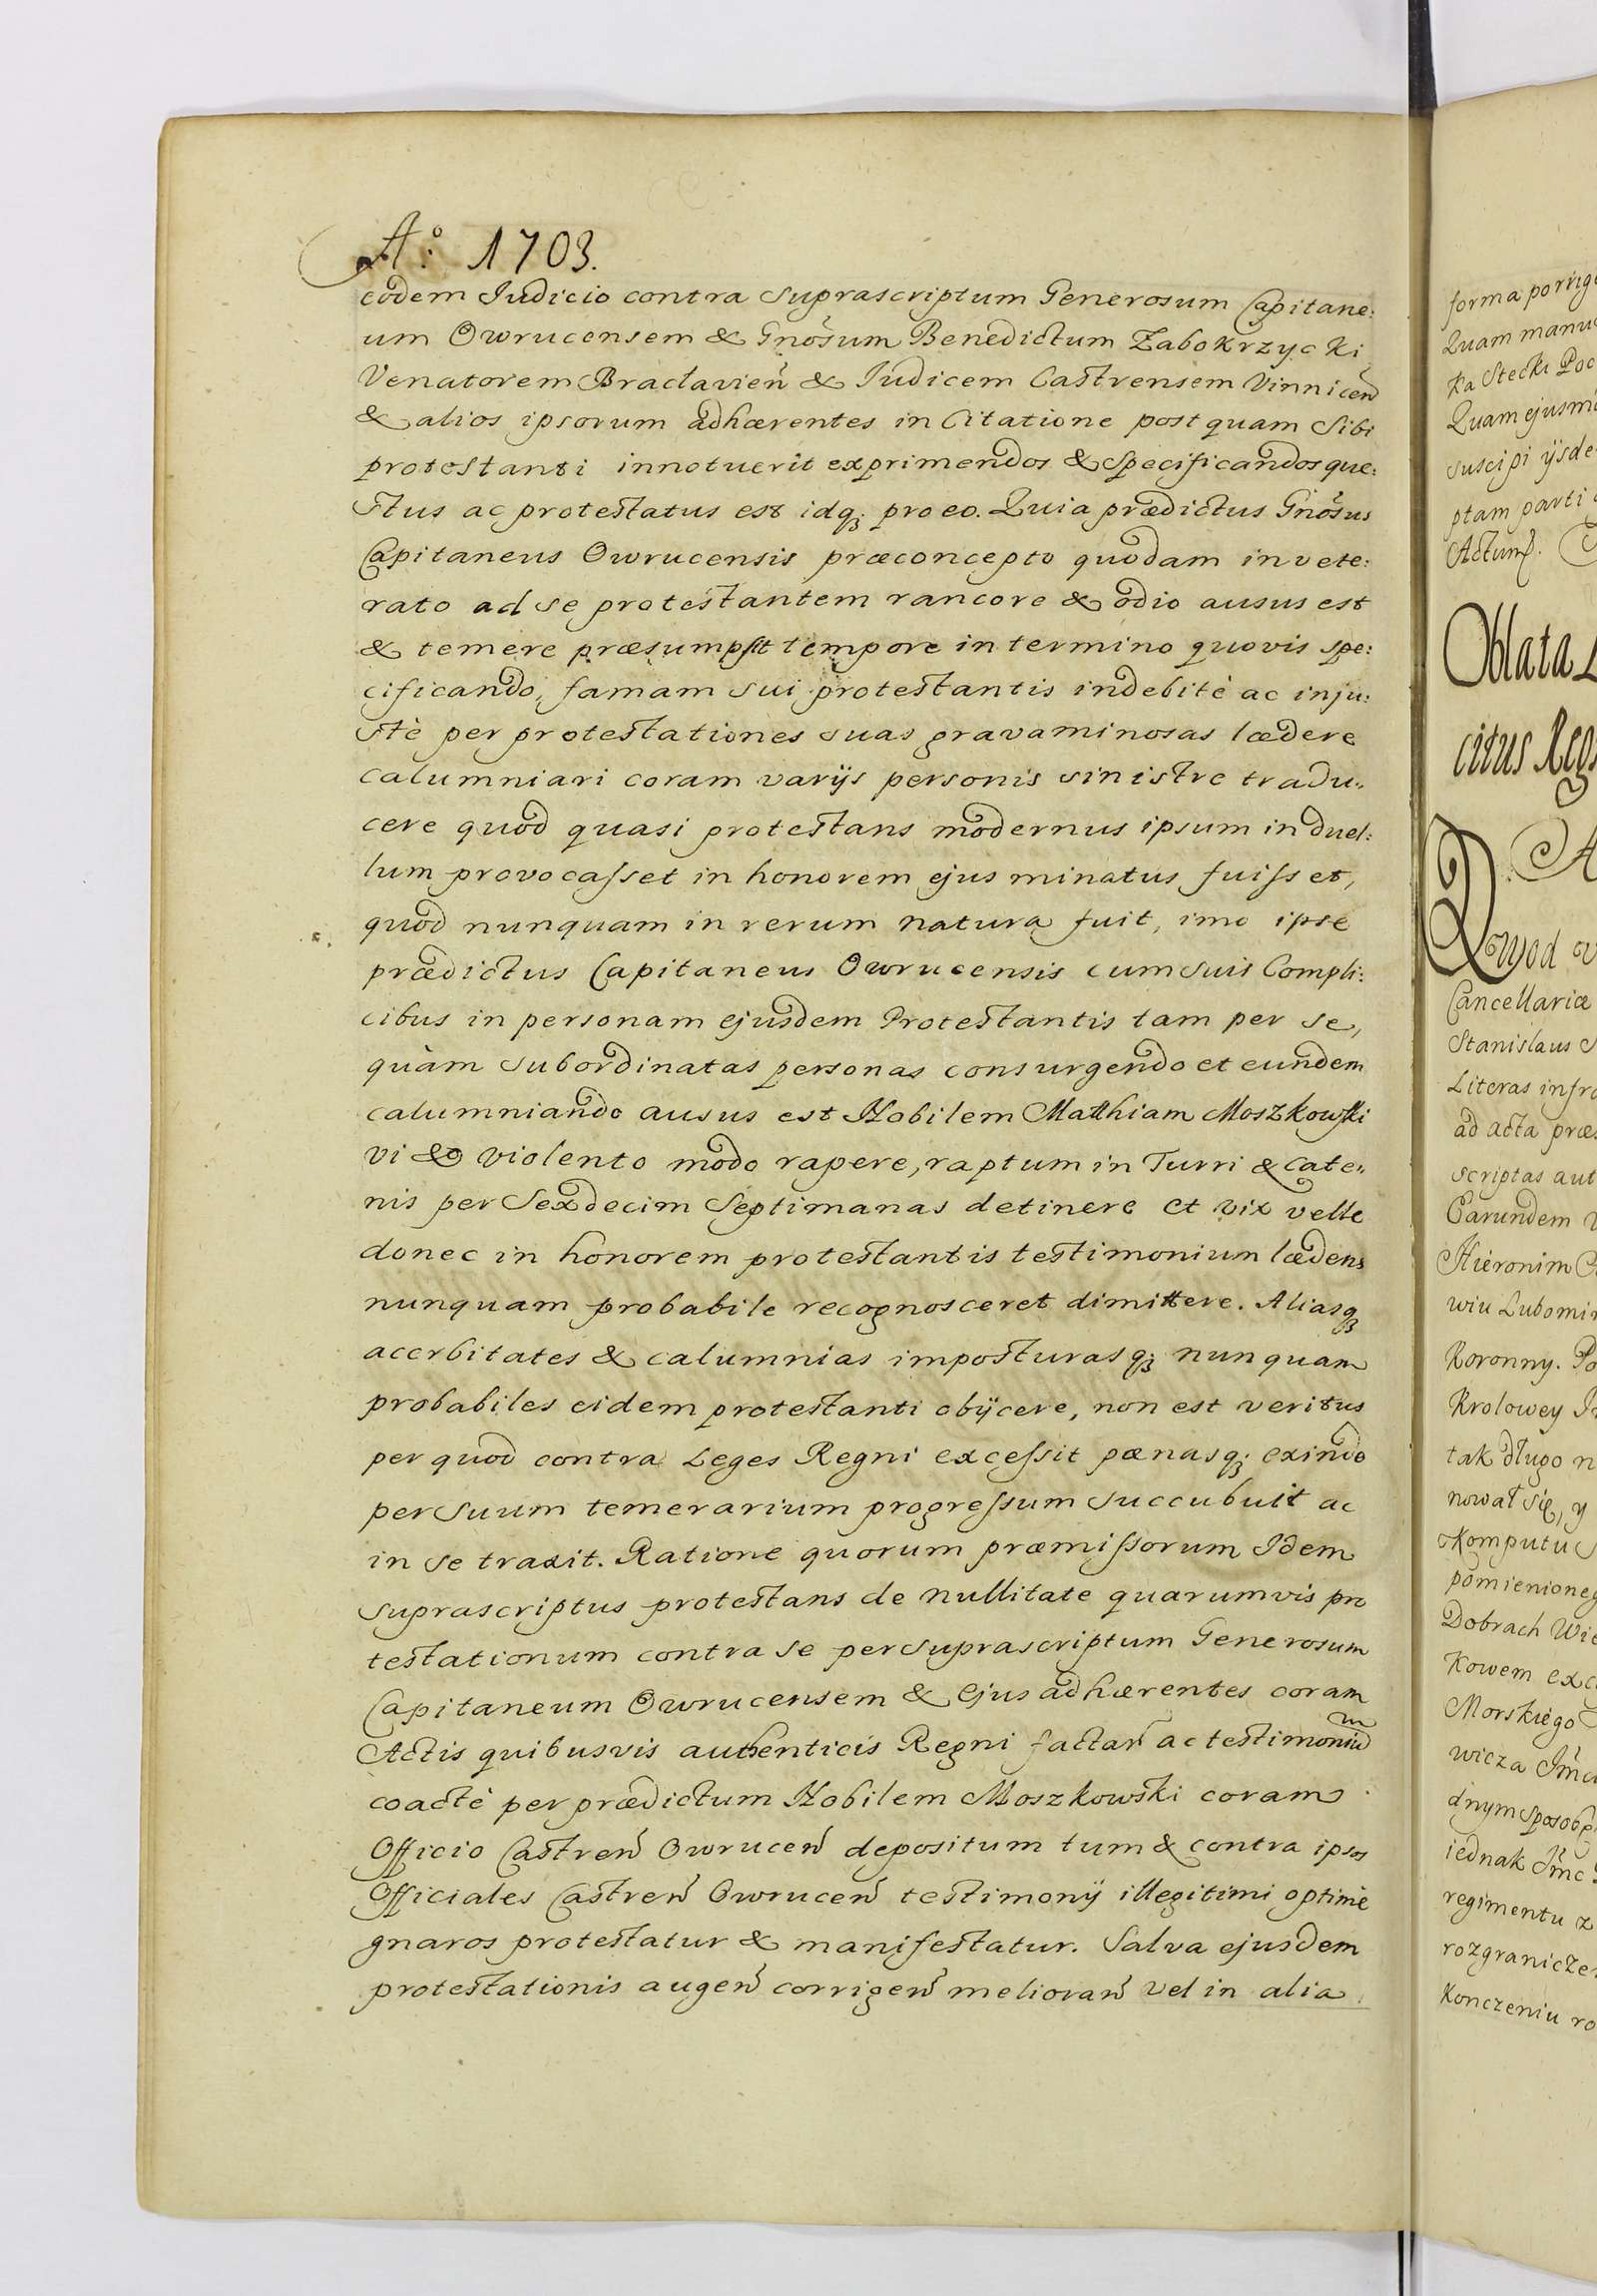 A°: 1703.
eodem Iudicio contra suprascriptum Generosum Capitane:
um Owrucensem & Gnosum Benedictum Zabokrzycki
Venatorem Bracłavien & Iudicem Castrensem Vinnicen
& alios ipsorum adhærentes in Citatione postquam sibi
protestanti innotuerit exprimendos & specificandos que:
stus ac protestatus est idq; pro eo. Quia prædictus Gnosus
Capitaneus Owrucensis præconcepto quodam invete:
rato ad se protestantem rancore & odio ausus est
& temere præsumpsit tempore in termino quovis spe:
cificando, famam sui protestantis indebitè ac inju:
stè per protestationes suas gravaminosas lædere
calumniari coram varijs personis sinistre tradu:
cere quod quasi protestans modernus ipsum in duel:
lum provocasset in honorem ejus minatus fuisset,
quod nunquam in rerum natura fuit, imo ipse
prædictus Capitaneus Owrucensis cum suis Compli:
cibus in personam ejusdem Protestantis tam per se,
quàm subordinatas personas consurgendo et eundem
calumniando ausus est Nobilem Matthiam Moszkowski
vi & violento modo rapere, raptum in Turri & Cate:
nis per Sexdecim Septimanas detinere et vix velle
donec in honorem protestantis testimonium lædens
nunquam probabile recognosceret dimittere. Aliasq;
acerbitates & calumnias imposturasq; nunquam
probabiles eidem protestanti obijcere, non est veritus
per quod contra Leges Regni excessit pænasq; exinde
per suum temerarium progressum succubuit ac
in se traxit. Ratione quorum præmissorum Idem
suprascriptus protestans de nullitate quarumvis pro
testationum contra se per suprascriptum Generosum
Capitaneum Owrucensem & Ejus adhærentes coram
Actis quibusvis authenticis Regni factar ac testimonium
coactè per prædictum Nobilem Moszkowski coram
Officio Castren Owrucen depositum tum & contra ipsos
Officiales Castren Owrucen testimonij illegitimi optimè
gnaros protestatur & manifestatur. Salva ejusdem
protestationis augen corrigen melioran vel in alia
forma porrige
Quam manu
Ka Stecki Poc
Quam ejusm
suscipi ijsde
ptam parti
Actum.
Oblata
citus Reg
A
Quod
Cancellariæ
Stanislaus
Literas infra
ad acta præ
scriptas aut
Earundem
Hieronim
wiu Lubomir
Koronny. Po
Krolowey
tak długo n
nował się, y
Komputu
pomienioneg
Dobrach Wie
Kowem exc
Morskiego
wicza Jmc
dnym sposob
iednak Jmc
regimentu z
rozgranicze
Konczeniu ro